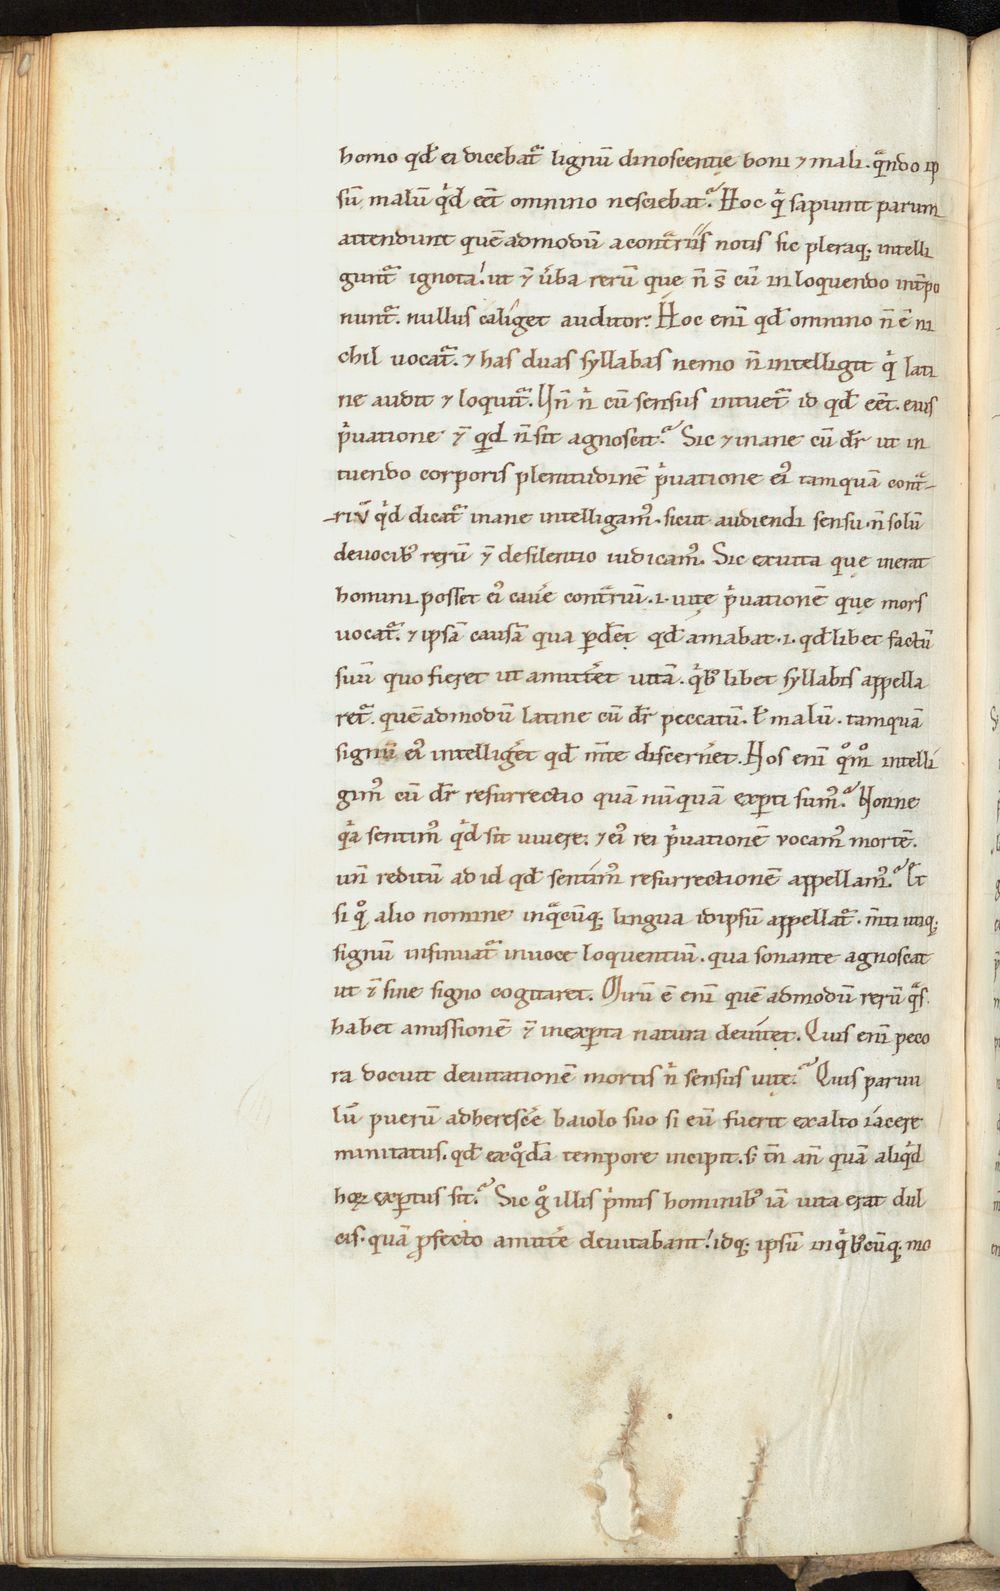 homo qđ ei dicebatᷓ lignū dinoscentie boni ⁊ mali. qᷓndo ip
sū malū qͥd eēt omnino nesciebat? Hoc qͥ sapiunt parum
attendunt quēadmodū a contᷓriis notis sic pleraq; intelli
guntᷓ ignota. ut ⁊̄ ūba rerū que n̄ s̄ cū in loquendo int̄po
nuntᷓ. nullus caliget auditor. Hoc enī qđ omnino n̄ ē ni
chil uocatᷓ. ⁊ has duas syllabas nemo n̄ intelligit qͥ lati
ne audit ⁊ loquitᷓ. Un̄ nͥ cū sensus intuetᷓ id qđ eēt. eius
pͥuatione ⁊̄ qđ n̄ sit agnoscit? Sic ⁊ inane cū dr̄ ut in
tuendo corporis plenitudinē pͥuatione eiꝰ tamquā contᷓ-
-riū qͥd dicatᷓ inane intelligamꝰ. sicut audiendi sensu. n̄ solū
de uocibꝰ rerū ⁊̄ de silentio iudicamꝰ. Sic ex uita que inerat
homini posset eiꝰ cauē contᷓriū .i. uite pͥuationē que mors
uocatᷓ. ⁊ ipsā causā qua ꝑđet qđ amabat .i. qđlibet factū
suū quo fieret ut amitt̄et uitā. qͥbꝰlibet syllabis appella
retᷓ. quēadmodū latine cū dr̄ peccatū. ł malū. tamquā
signū eiꝰ intelliḡet qđ m̄te discern̄et. Nos enī qͦmͦ intelli
gimꝰ cū dr̄ resurrectio quā nūquā exꝑti sumꝰ? Nonne
qͥa sentimꝰ qͥd sit uiuere. ⁊ eiꝰ rei pͥuationē vocamꝰ mortē.
un̄ reditū ad id qđ sentimꝰ resurrectionē appellamꝰ? Et
si qͦ alio nomine in qᷓcūq; lingua id ipsū appellatᷓ. m̄ti utiq;
signū insinuatᷓ in uoce loquentiū. qua sonante agnoscat
ut ⁊̄ sine signo cogitaret. Mirū ē enī quēadmodū rerū qᷓs
habet amissionē ⁊̄ inexꝑta natura deuitet. Quis enī peco
ra docuit deuitationē mortis nͥ sensus uite? Quis paruu
lū puerū adherescē baiolo suo si eū fuerit ex alto iacere
minitatus. qđ ex qͦdā tempore incipit. s; tn̄ an̄ quā aliqͥd
hoꝝ exꝑtus sit? Sic gͦ illis pͥmis hominibꝰ iā uita erat dul
cis. quā ꝓfecto amittē deuitabant. idq; ipsū in qͥbꝰcūq; mo